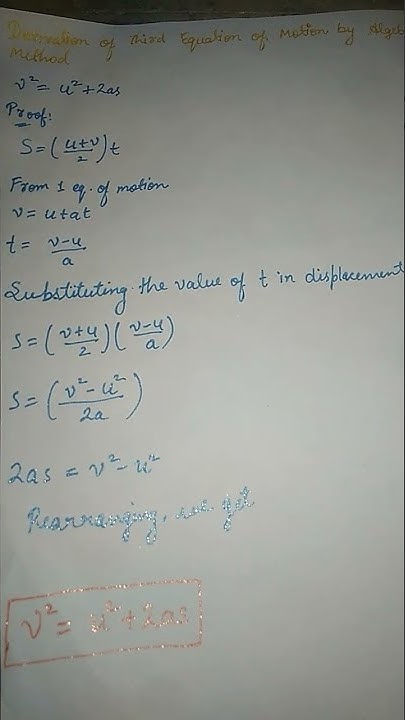 Derivation of Third Equation of Motion by Algeb
Method
v² = u² + 2as
Proof:
S = (u+v/2)t
From 1 eq. of motion
v = u+at
t = v-u/a
Substituting the value of t in displacement
S = (v+u/2)(v-u/a)
S = (v²-u²/2a)
2as = v²-u²
Rearranging, we get
v² = u²+2as